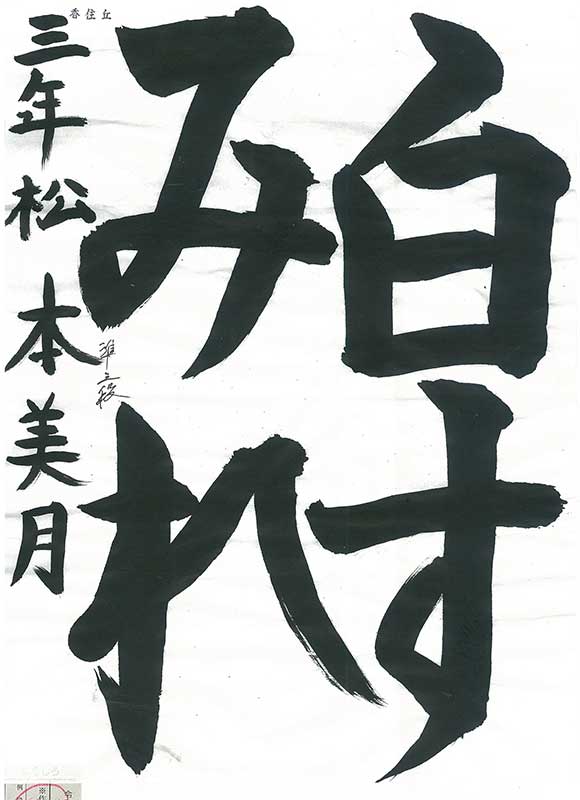 白す
みれ
三年松本美月
香住丘
準五段